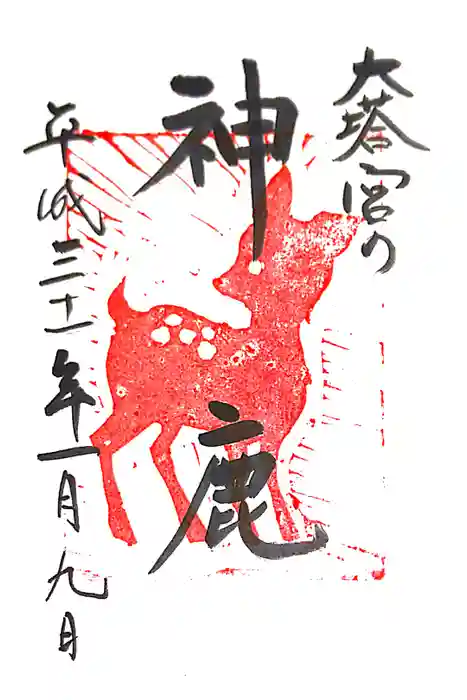 大塔宮の
神鹿
平成三十一年一月九日